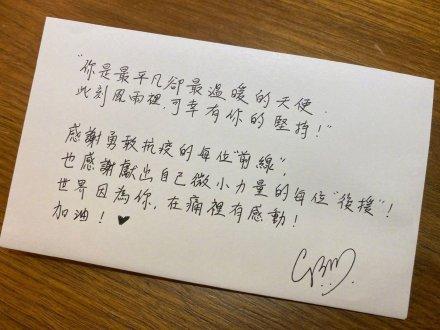 "你是最平凡卻最溫暖的天使.
此刻風雨裡,可幸有你的堅持!"
感謝勇敢抗疫的每位"前線",
也感謝獻出自己微小力量的每位"後援"!
世界因為你,在痛裡有感動!
加油! ♥